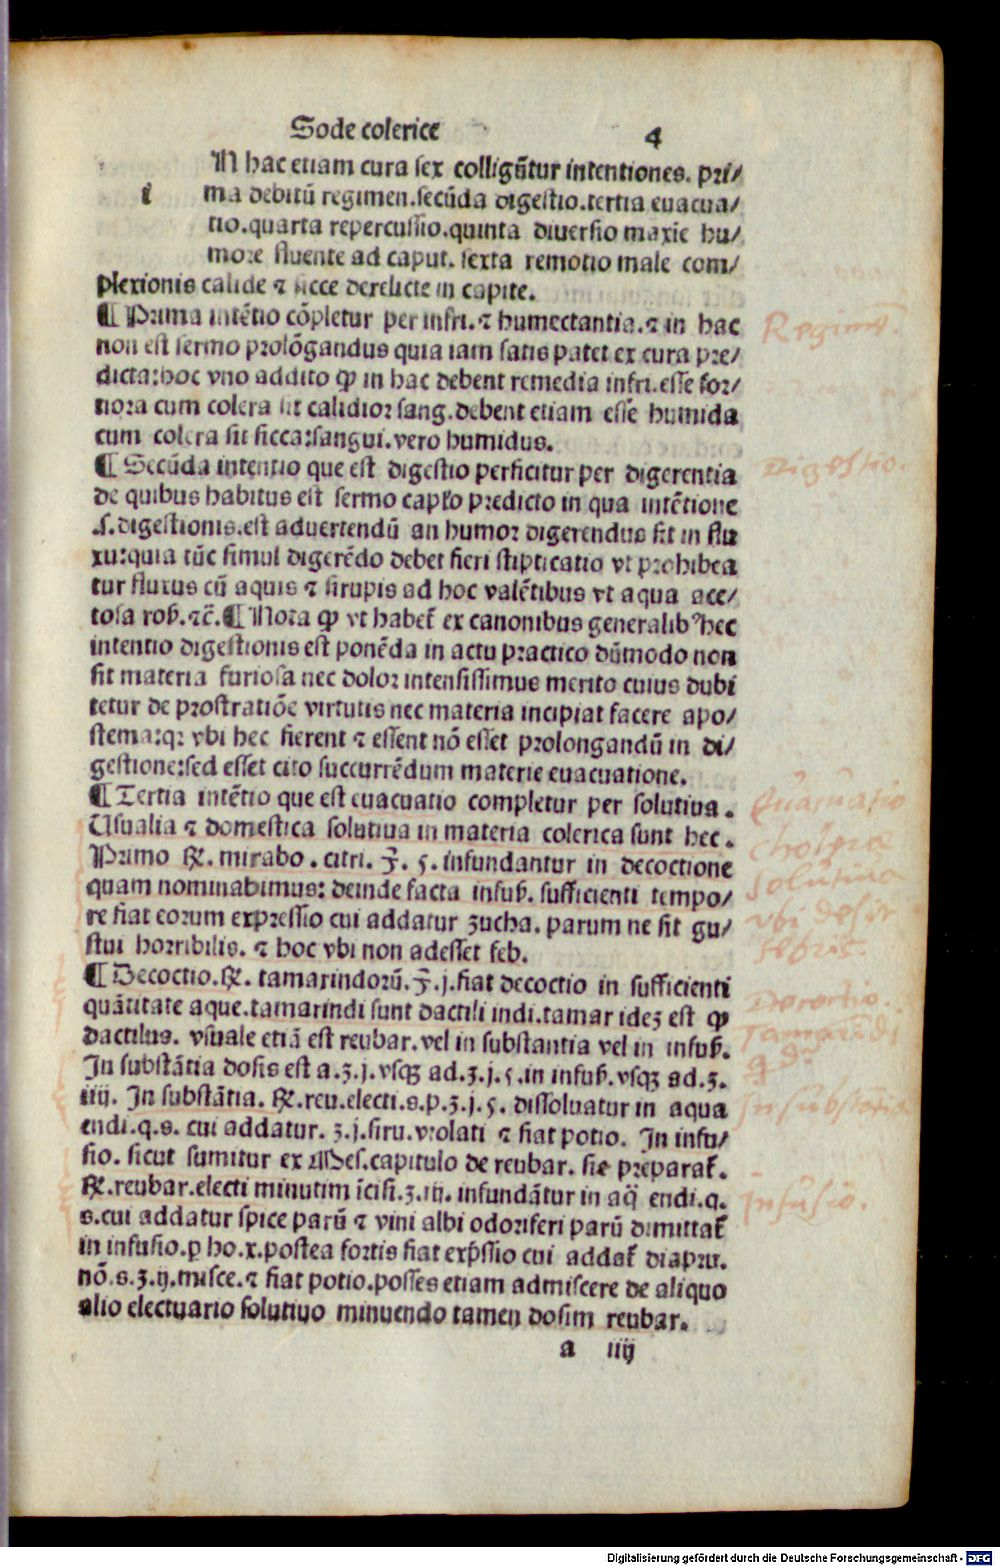 Sode colerice 4
i N hac etiam cura sex colligũtur intentiones. pri/
ma debitũ regimen.secũda digestio.tertia euacua/
tio.quarta repercussio.quinta diuersio maxĩe hu/
more fluente ad caput. sexta remotio male com/
plexionis calide ⁊ sicce derelicte in capite.
¶ Prima intẽtio cõpletur per infri.⁊ humectantia.⁊ in hac
non est sermo prolõgandus quia iam satis patet ex cura pre/
dicta:hoc vno addito ꝙ in hac debent remedia infri.esse for/
tiora cum colera sit calidior sang.debent etiam esse humida
cum colera sit sicca:sangui.vero humidus.
¶ Secũda intentio que est digestio perficitur per digerentia
de quibus habitus est sermo capło predicto in qua intẽtione
.s.digestionis.est aduertendũ an humor digerendus sit in flu
xu:quia tũc simul digerẽdo debet fieri stipticatio vt prohibea
tur fluxus cũ aquis ⁊ sirupis ad hoc valẽtibus vt aqua ace/
tosa roß.⁊c̃.¶ Nota ꝙ vt habet̃ ex canonibus generalibꝰ hec
intentio digestionis est ponẽda in actu practico dũmodo non
sit materia furiosa nec dolor intensissimus merito cuius dubi
tetur de prostratiõe virtutis nec materia incipiat facere apo/
stema:qꝛ vbi hec fierent ⁊ essent nõ esset prolongandũ in di/
gestione:sed esset cito succurrẽdum materie euacuatione.
¶ Tertia intẽtio que est euacuatio completur per solutiua.
Usualia ⁊ domestica solutiua in materia colerica sunt hec.
Primo ℞. mirabo.citri. ʒ̃. 5. infundantur in decoctione
quam nominabimus: deinde facta infuß. sufficienti tempo/
re fiat eorum expressio cui addatur zucha. parum ne sit gu/
stui horribilis. ⁊ hoc vbi non adesset feb.
¶ Decoctio.℞. tamarindorũ. ʒ̃.j.fiat decoctio in sufficienti
quãtitate aque.tamarindi sunt dactili indi.tamar ideȝ est ꝙ
dactilus. vsuale etiã est reubar.vel in substantia vel in infuß.
In substãtia dosis est a.ʒ.j.vsqȝ ad.ʒ.j.5.in infuß.vsqȝ ad.ʒ.
iiij. In substãtia. ℞.reu.electi.s.p.ʒ.j.5. dissoluatur in aqua
endi.q.s. cui addatur. ʒ.j.siru.violati ⁊ fiat potio. In infu/
sio. sicut sumitur ex Mes.capitulo de reubar. sic preparat̃.
℞.reubar.electi minutim ĩcisi.ʒ.iij. infundãtur in aq̃ endi.q.
s.cui addatur spice parũ ⁊ vini albi odoriferi parũ dimittat̃
in infusio.p ho.x.postea fortis fiat exp̃ssio cui addat̃ diapru.
nõ.s.ʒ.ij.misce.⁊ fiat potio.posses etiam admiscere de aliquo
alio electuario solutiuo minuendo tamen dosim reubar.
a iiij
Regimẽ.
Digestio.
Euacuatio
cholerae
solutiua
vbi desit
febris.
Decoctio.
Tamarĩdi
In substãtia
Infusio.
Digitalisierung gefördert durch die Deutsche Forschungsgemeinschaft - DFG